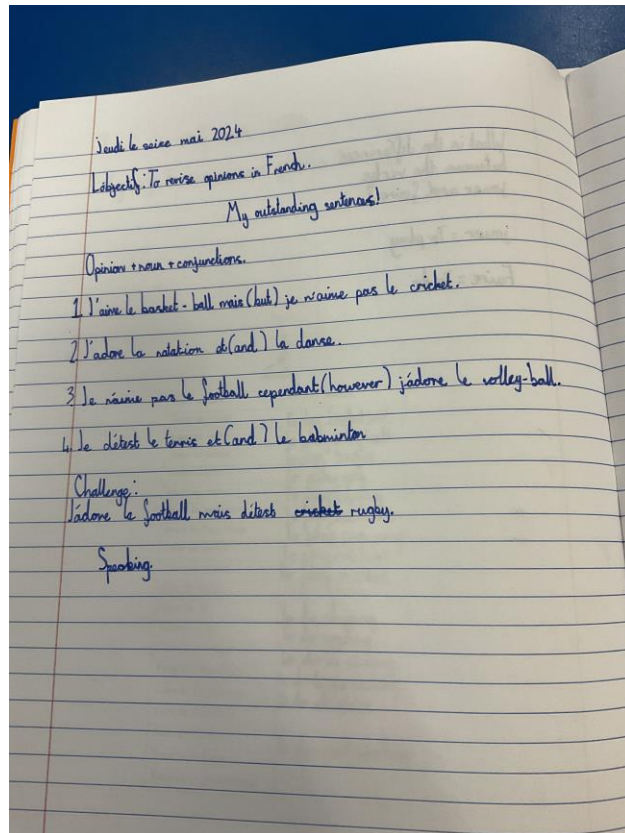 Jeudi le seize mai 2024
L'objectif: To revise opinions in French.
My outstanding sentences!
Opinion + noun + conjunctions.
1 J'aime le basket-ball mais (but) je n'aime pas le cricket.
2 J'adore la natation et (and) la danse.
3 Je n'aime pas le football cependant (however) j'adore le volley-ball.
4. Je détest le tennis et (and) le babminton
Challenge:
J'adore le football mais détest cricket rugby.
Speaking.